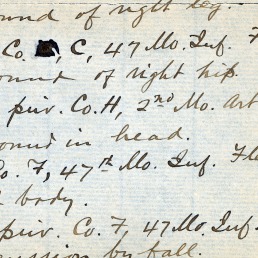 ound of right leg.
Co. , C, 47 Mo. Inf. F
ound of right hip.
priv. Co. H, 2nd Mo. Art
ound in head.
Co. F, 47th Mo. Inf. Fle
body.
priv. Co. F, 47 Mo. Inf.
cussion by fall.